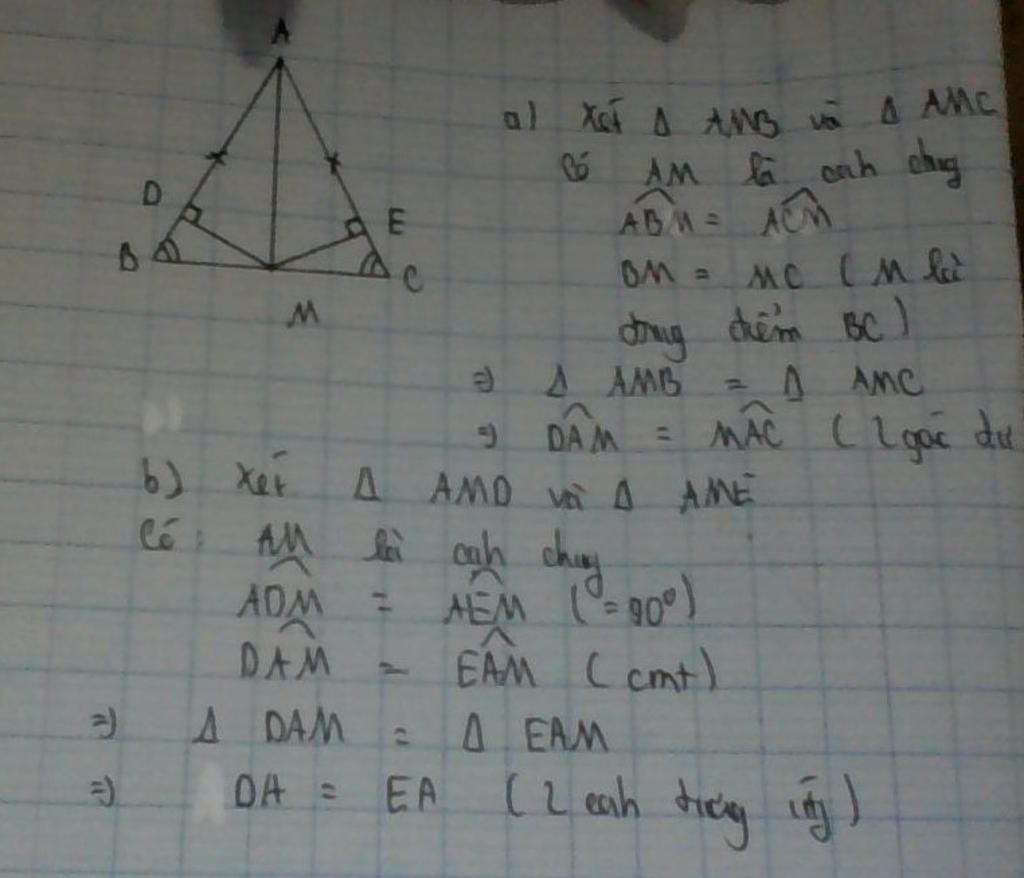 A
D
E
B
C
M
a) Xét Δ AMB và Δ AMC
Có AM là cạnh chung
ABM = ACM
BM = MC ( M là
trung điểm BC )
=> Δ AMB = Δ AMC
=> DAM = MAC ( 2 góc
b) Xét Δ AMD và Δ AME
Có : AM là cạnh chung
ADM = AEM ( = 90° )
DAM = EAM ( cmt )
=> Δ DAM = Δ EAM
=> DA = EA ( 2 cạnh tương ứng )